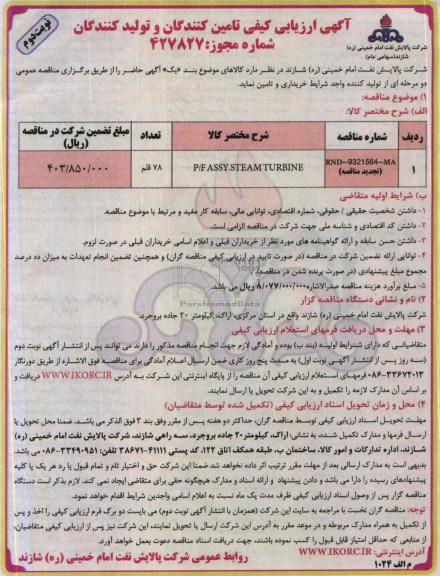 نوبت دوم
آگهی ارزیابی کیفی تامین کنندگان و تولید کنندگان
شماره مجوز: ۴۲۷۸۲۷
شرکت پالایش نفت امام خمینی (ره)
شازند(سهامی عام)
شرکت پالایش نفت امام خمینی (ره) شازند در نظر دارد کالاهای موضوع بند «یک» آگهی حاضر را از طریق برگزاری مناقصه عمومی
دو مرحله ای از تولید کننده واجد شرایط خریداری و تامین نماید.
۱) موضوع مناقصه:
الف) شرح مختصر کالا:
ردیف شماره مناقصه شرح مختصر کالا تعداد مبلغ تضمین شرکت در مناقصه (ریال)
۱ RND-9321564-MA (تجدید مناقصه) P/F ASSY.STEAM TURBINE ۷۸ قلم ۴۰۳/۸۵۰/۰۰۰
ب) شرایط اولیه متقاضی
۱- داشتن شخصیت حقیقی / حقوقی، شماره اقتصادی، توانایی مالی، سابقه کار مفید و مرتبط با موضوع مناقصه.
۲- داشتن کد اقتصادی و شناسه ملی جهت شرکت در مناقصه الزامی است.
۳- داشتن حسن سابقه و ارائه گواهینامه های مورد نظر از خریداران قبلی و اعلام اسامی خریداران قبلی در صورت لزوم.
۴- توانایی ارائه تضمین شرکت در مناقصه (در صورت تایید در ارزیابی کیفی مناقصه گران) و همچنین تضمین انجام تعهدات به میزان ده درصد
مجموع مبلغ پیشنهادی (در صورت برنده شدن در مناقصه).
۵- مبلغ برآورد هزینه مناقصه صدرالاشاره ۸/۰۷۷/۰۰۰/۰۰۰ ریال می باشد.
۲) نام و نشانی دستگاه مناقصه گزار
شرکت پالایش نفت امام خمینی (ره) شازند واقع در استان مرکزی، اراک، کیلومتر ۲۰ جاده بروجرد.
۳) مهلت و محل دریافت فرمهای استعلام ارزیابی کیفی
متقاضیانی که دارای شرایط اولیه (بند ب) بوده و آمادگی لازم جهت انجام مناقصه مذکور را دارند می توانند پس از انتشار آگهی نوبت دوم
(سه روز پس از انتشار آگهی نوبت اول) به مدت پنج روز کاری ضمن ارسال اعلام آمادگی برای مناقصه فوق الاشاره از طریق دورنگار
۰۸۶-۳۳۶۷۲۰۱۳ فرمهای استعلام ارزیابی کیفی آن مناقصه را از پایگاه اینترنتی این شرکت به آدرس WWW.IKORC.IR دریافت و
بر اساس آن مدارک لازمه را تکمیل و به این شرکت تحویل یا ارسال نمایند.
۴) محل و زمان تحویل اسناد ارزیابی کیفی (تکمیل شده توسط متقاضیان)
مهلت تحویل اسناد ارزیابی کیفی توسط مناقصه گران، حداکثر دو هفته پس از مقرر وفق بند ۳ فوق الذکر می باشد. ضمنا محل تحویل یا
ارسال فرمها و مدارک تکمیل شده، به نشانی: اراک، کیلومتر ۲۰ جاده بروجرد، سه راهی شازند، شرکت پالایش نفت امام خمینی (ره)
شازند، اداره تدارکات و امور کالا، ساختمان ب، طبقه همکف اتاق ۱۲۲، کد پستی ۴۱۱۱۱-۳۸۶۷۱ تلفن: ۳۳۴۹۰۹۵۱-۰۸۶ می باشد.
بدیهی است به مدارک ارسالی بعد از مهلت مقرر ترتیب اثر داده نخواهد شد ضمنا این شرکت حق و اختیار تام و تمام قبول یا رد هر یک یا کلیه
پیشنهادهای رسیده را دارا می باشد و دادن پیشنهاد و ارائه اسناد و مدارک هیچگونه حقی برای متقاضی ایجاد نمی کند. لازم بذکر است دستگاه
مناقصه گزار پس از وصول اسناد ارزیابی کیفی ظرف مدت یک ماه نسبت به اعلام اسامی واجدین شرایط اقدام خواهد نمود.
توجه: مناقصه گران نخست با مراجعه به سایت این شرکت (همزمان با انتشار آگهی نوبت دوم) می بایست دو برگ فرم ارزیابی کیفی را اخذ و پس
از تکمیل به همراه مدارک مربوطه و در موعد مقرر به آدرس این شرکت ارسال یا تحویل نمایند، این شرکت نیز پس از ارزیابی کیفی متقاضیان،
از منابعی که حداقل امتیاز قابل قبول را کسب نموده باشند، جهت دریافت اسناد مناقصه دعوت بعمل خواهد آورد.
آدرس اینترنتی: WWW.IKORC.IR
م الف ۱۰۲۴
روابط عمومی شرکت پالایش نفت امام خمینی (ره) شازند